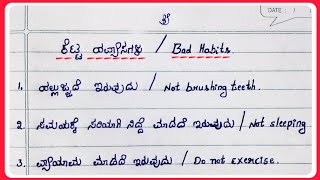 ಶ್ರೀ
DATE: /
ಕೆಟ್ಟ ಹವ್ಯಾಸಗಳು / Bad Habits
1. ಹಲ್ಲುಜ್ಜದೆ ಇರುವುದು / Not brushing teeth.
2. ಸಮಯಕ್ಕೆ ಸರಿಯಾಗಿ ನಿದ್ದೆ ಮಾಡದೆ ಇರುವುದು / Not sleeping
3. ವ್ಯಾಯಾಮ ಮಾಡದೆ ಇರುವುದು / Do not exercise.